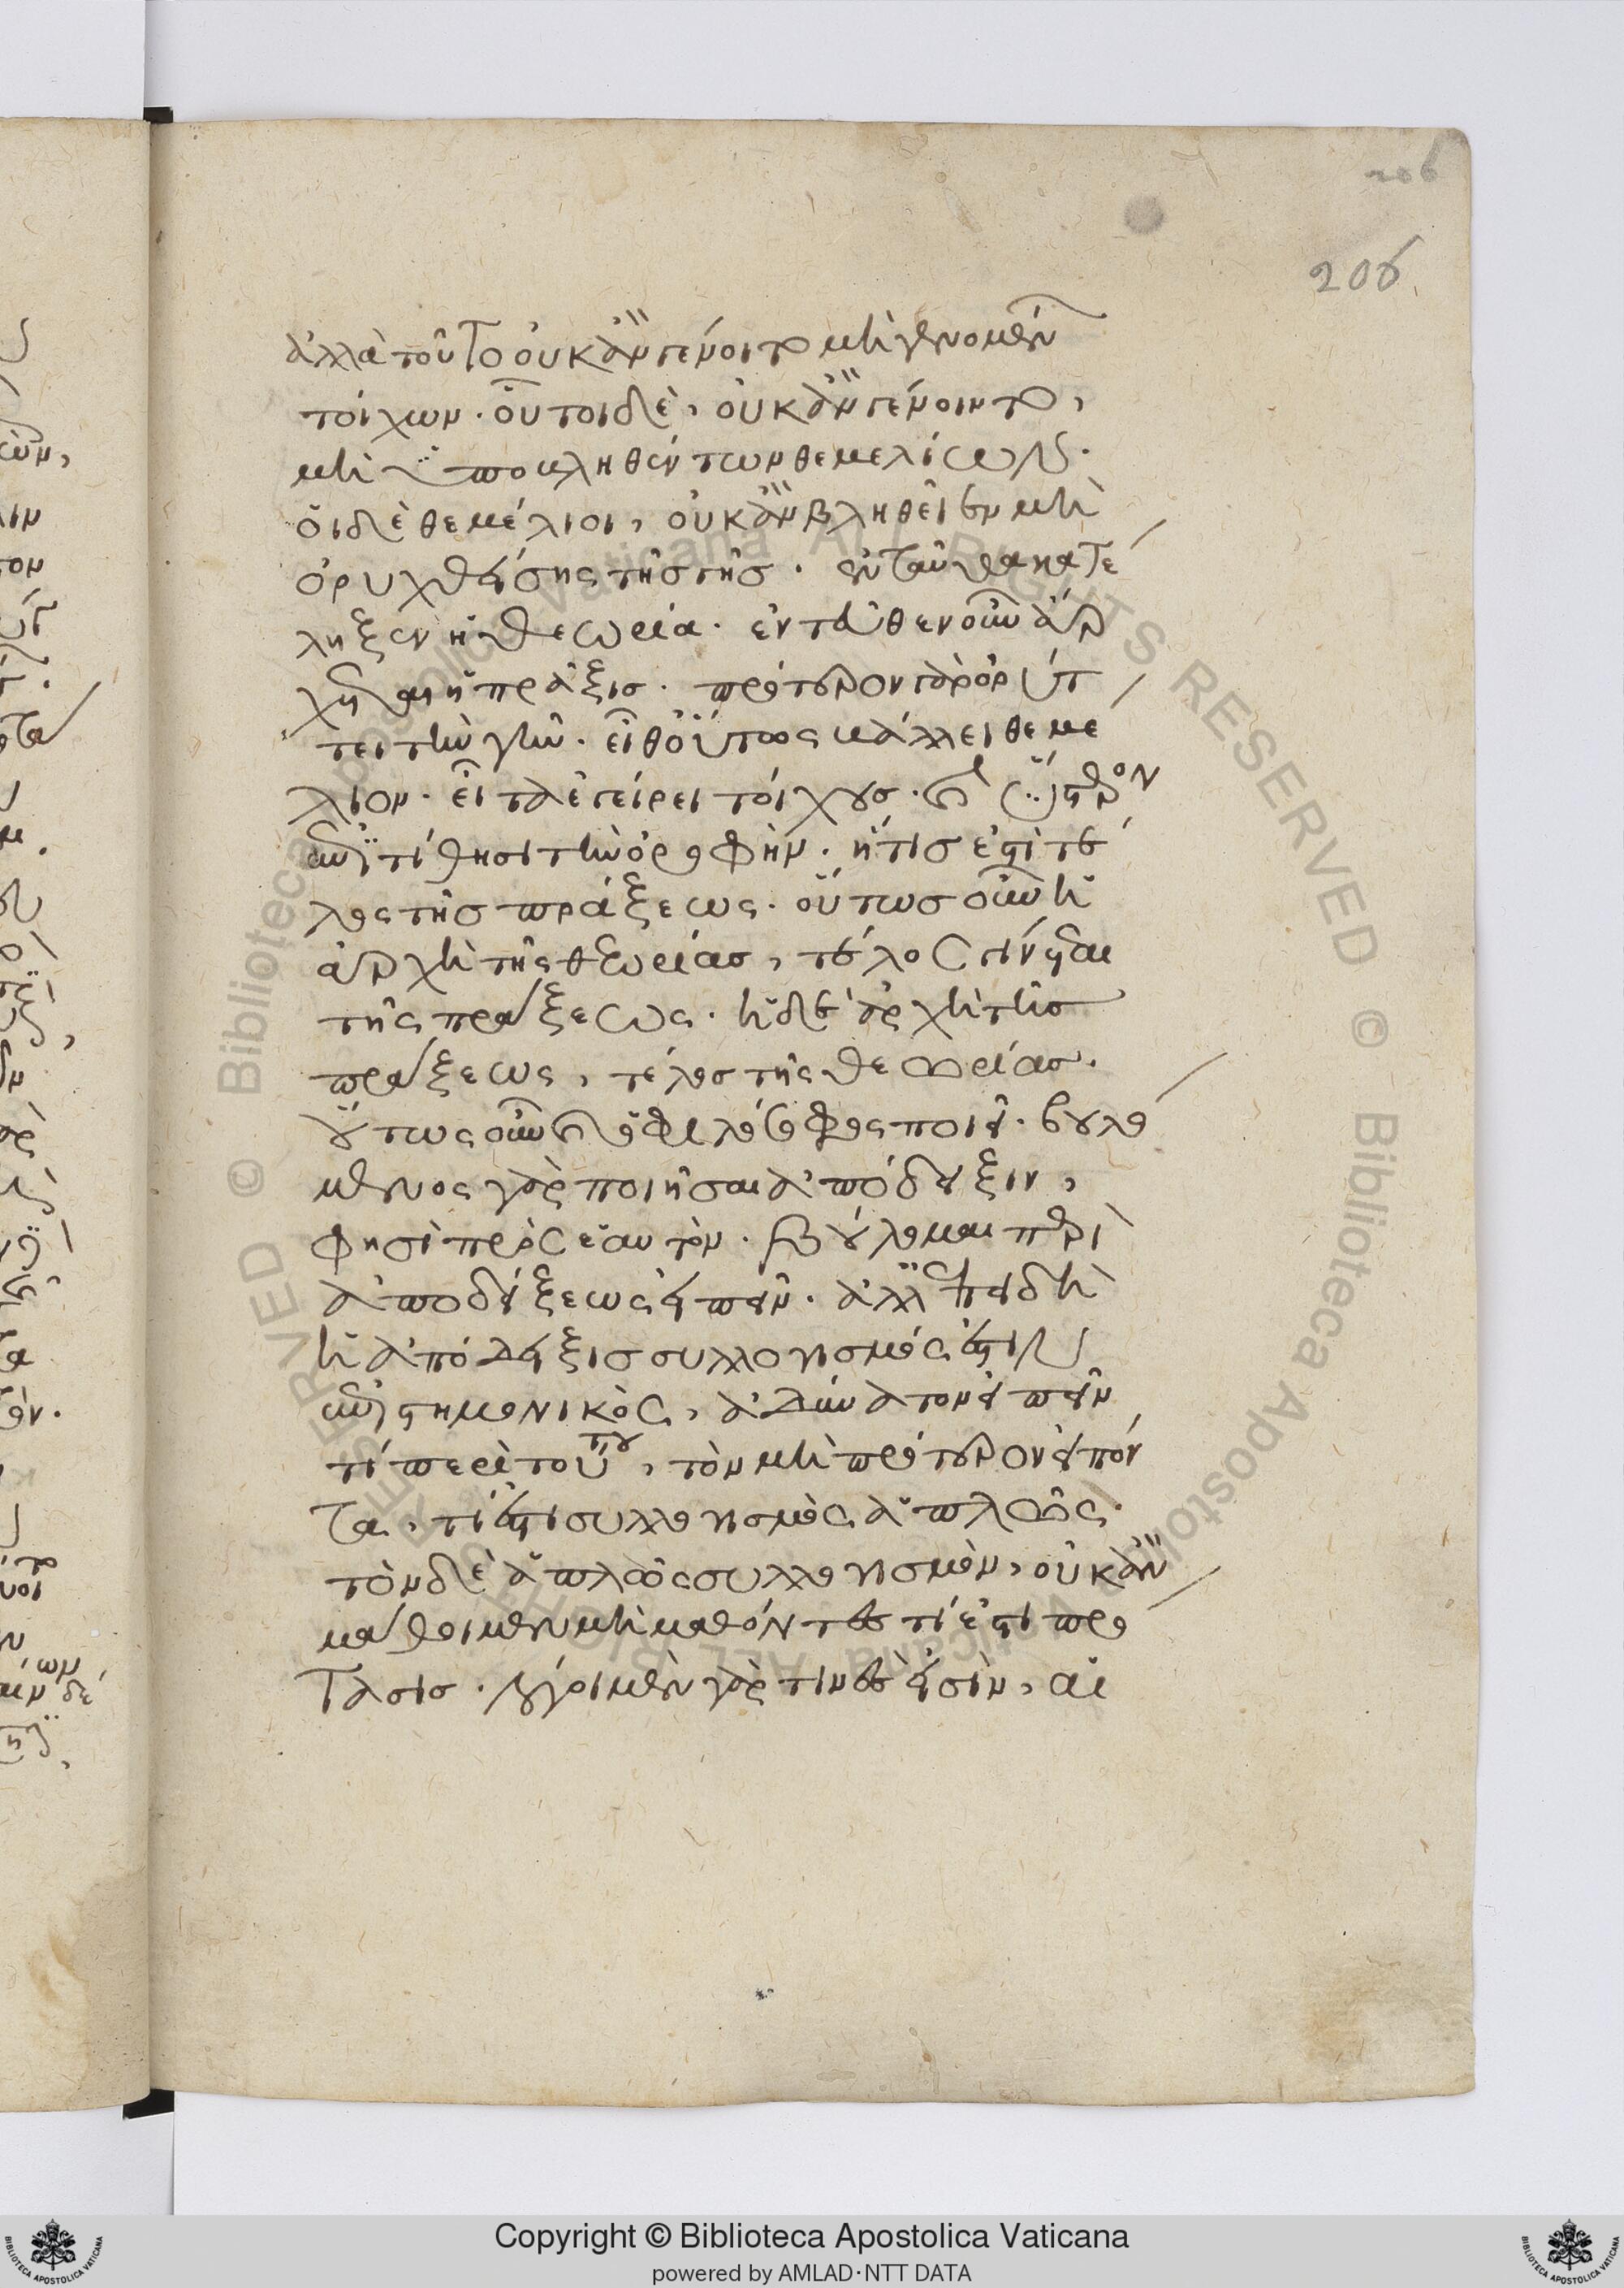 206
206
ἀλλὰ τοῦτο οὐκ ἂν γένοιτο μὴ γενομένων
τοίχων. οὗτοι δὲ, οὐκ ἂν γένοιντο,
μὴ ὑποβληθέντων θεμελίων.
οἱ δὲ θεμέλιοι, οὐκ ἂν βληθεῖεν μὴ
ὀρυχθείσης τῆς γῆς. ἐνταῦθα κατέ
ληξεν ἡ θεωρία. ἐντεῦθεν οὖν ἄρ
χεται ἡ πρᾶξις. πρότερον γὰρ ὀρύτ
τει τὴν γῆν. εἶθ οὕτως βάλλει θεμέ
λιον. εἶτα ἐγείρει τοίχους. καὶ ὕστερον
ἐπιτίθησι τὴν ὀροφὴν. ἥτις ἐστὶ τέ
λος τῆς πράξεως. οὕτως οὖν ἡ
ἀρχὴ τῆς θεωρίας, τέλος γίνεται
τῆς πράξεως. ἡ δὲ ἀρχὴ τῆς
πράξεως, τέλος τῆς θεωρίας.
οὕτως οὖν καὶ ὁ φιλόσοφος ποιεῖ. βουλό
μενος γὰρ ποιῆσαι ἀπόδειξιν,
φησὶ πρὸς ἑαυτὸν. βούλομαι περὶ
ἀποδείξεως εἰπεῖν. ἀλλ ἐπειδὴ
ἡ ἀπόδειξις συλλογισμός ἐστιν
ἐπιστημονικὸς, ἀδύνατον εἰπεῖν
τί περὶ τούτου, τὸν μὴ πρότερον εἰπόν
τα, τί ἐστι συλλογισμὸς ἁπλῶς.
τὸν δὲ ἁπλῶς συλλογισμὸν, οὐκ ἂν
μάθοιμεν μὴ μαθόντες τί ἐστι πρό
τασις. λόγοι μὲν γὰρ τινὲς εἰσὶν, αἱ
Copyright © Biblioteca Apostolica Vaticana
powered by AMLAD·NTT DATA